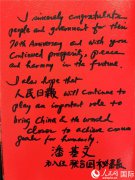 I sincerely congratulate
people and government for their
70th Anniversary and wish you
Continued prosperity, peace
and harmony in the future.
I also hope that
人民日報 will continue to
play an important role to
bring China & the world
closer to achieve common
goals for humanity.
潘基文
人民网